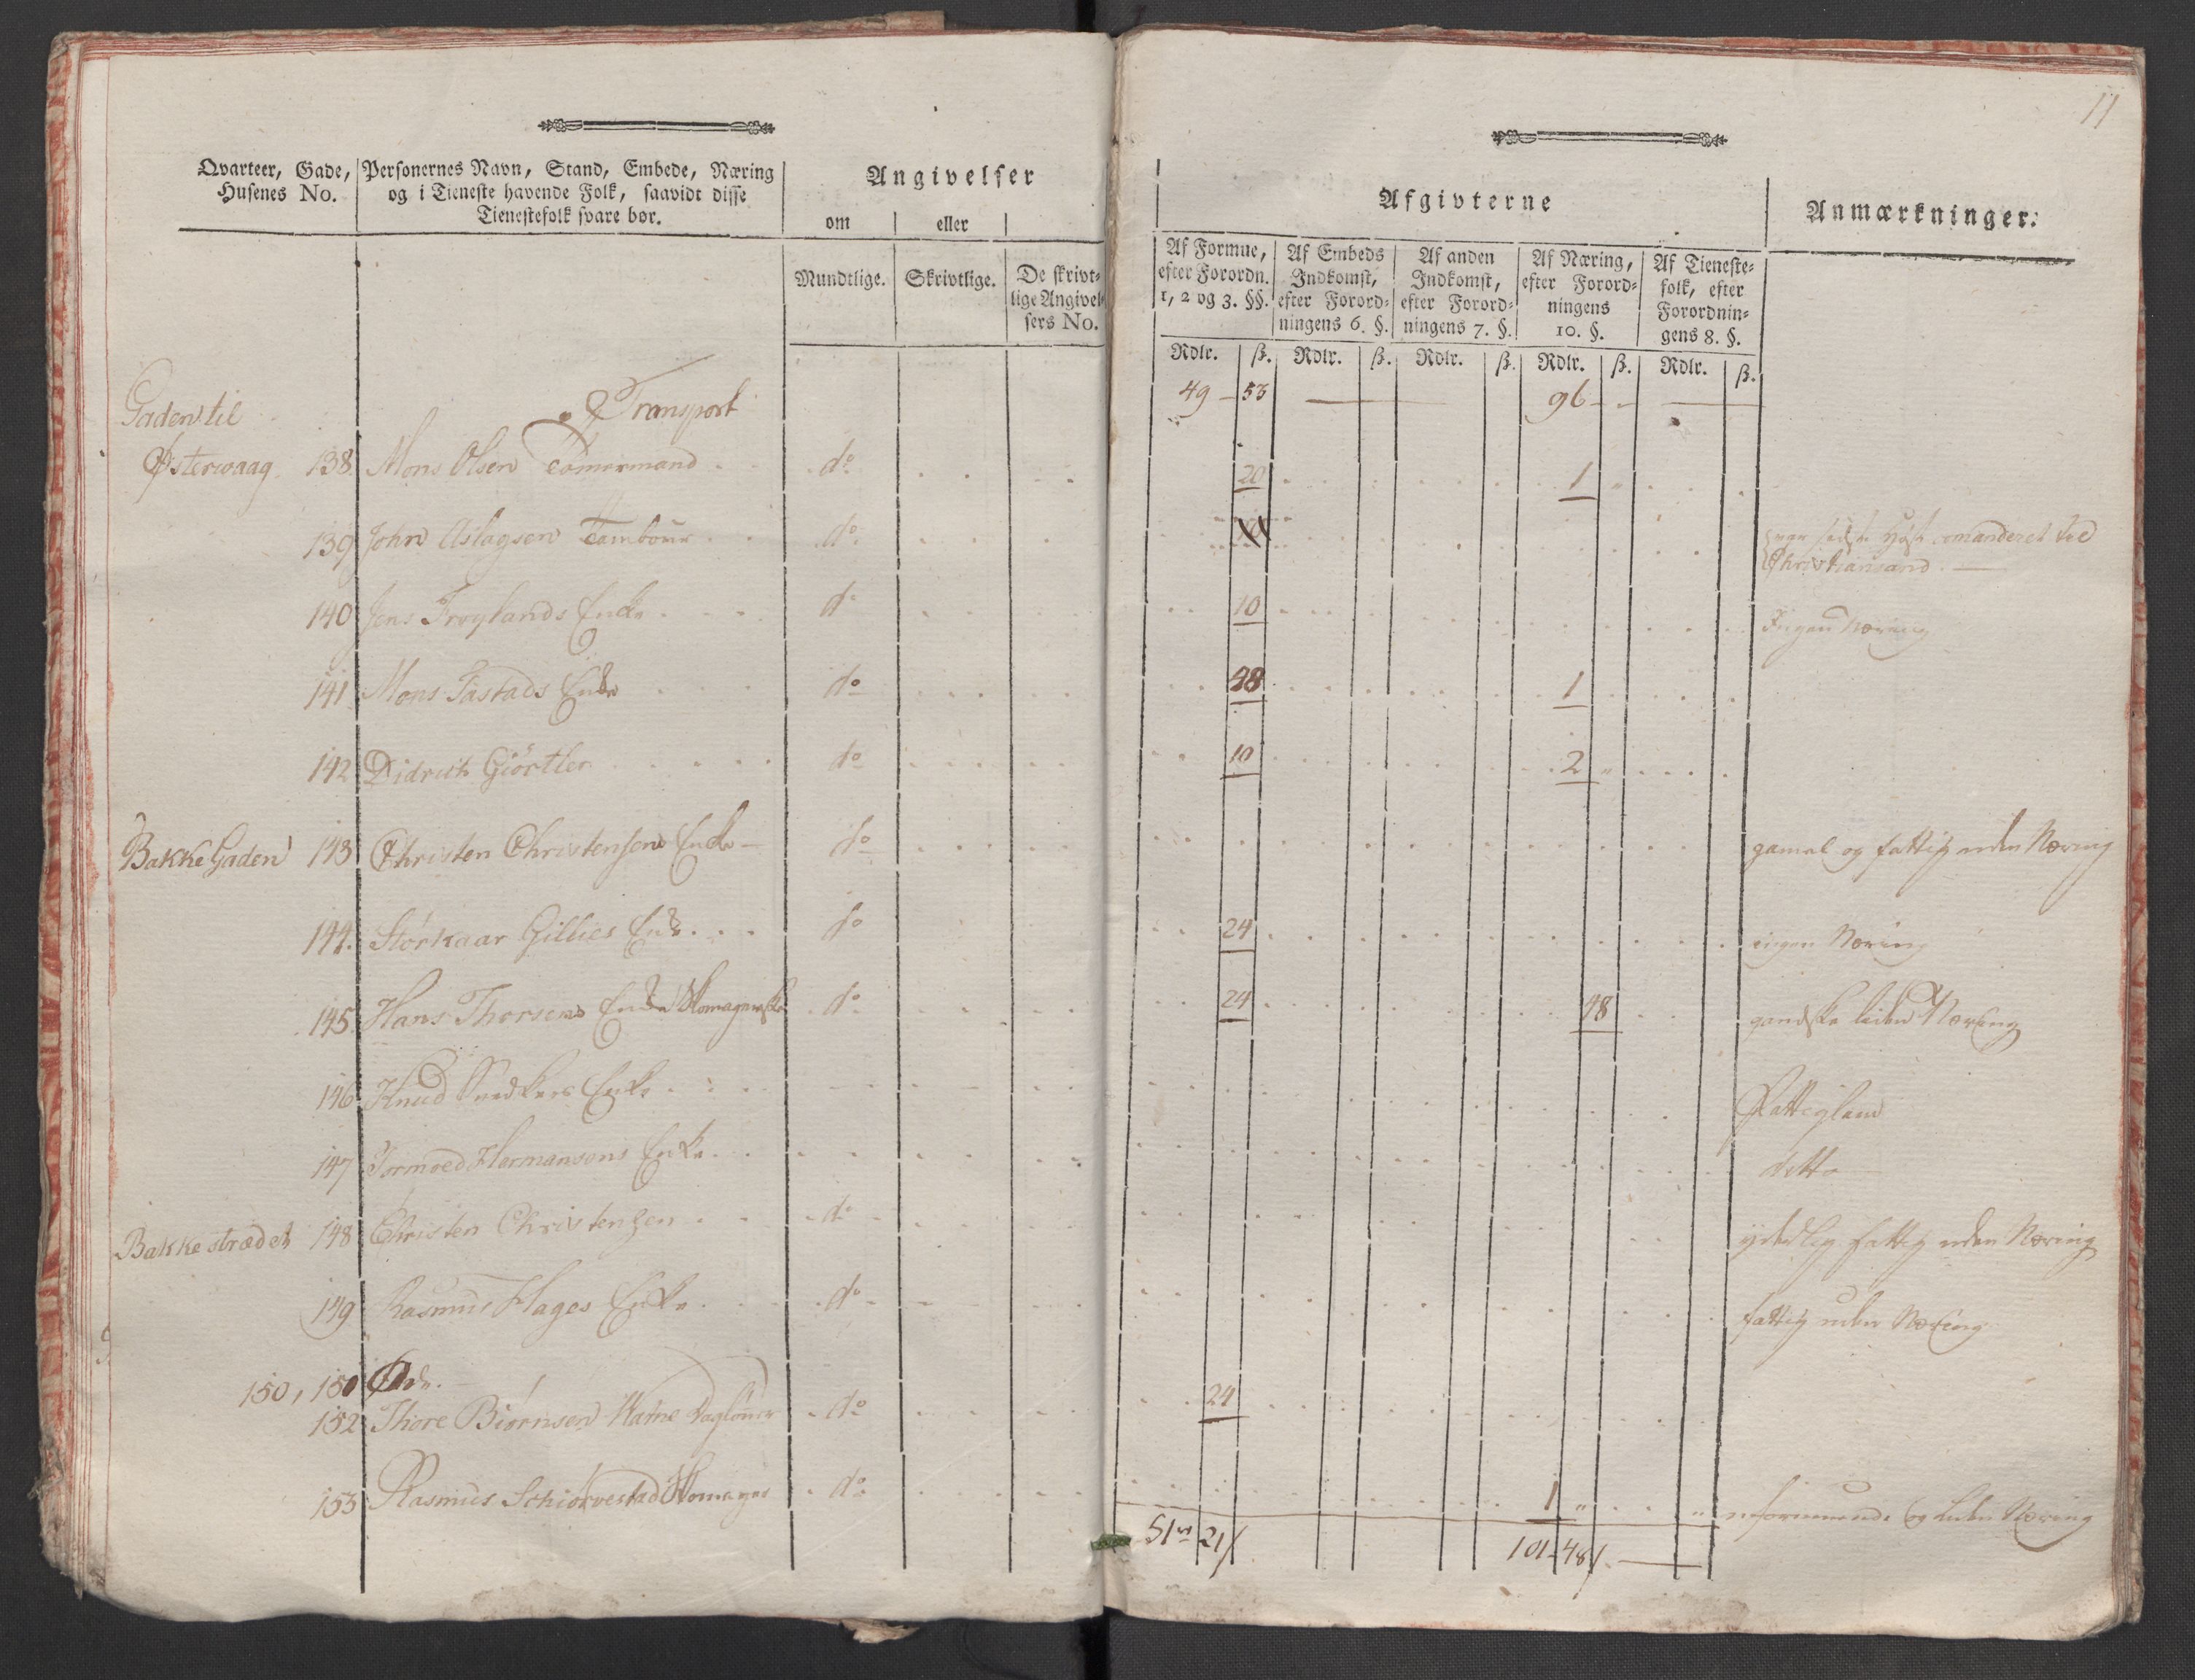 11
Qvarteer, Gade, Husenes No.
Personernes Navn, Stand, Embede, Næring og i Tieneste havende Folk, saavidt disse Tienestefolk svare bør.
Angivelser
om eller
Mundtlige. Skrivtlige. De skrivtlige Angivelsers No.
Afgivterne
Anmærkninger.
Af Formue, efter Forordn. 1, 2 og 3. §§.
Af Embeds Indkomst, efter Forordningens 6. §.
Af anden Indkomst, efter Forordningens 7. §.
Af Næring, efter Forordningens 10. §.
Af Tienestefolk, efter Forordningens 8. §.
Rdlr. ß. Rdlr. ß. Rdlr. ß. Rdlr. ß. Rdlr. ß.
Transport 49 - 53 96 -
Gaden til
Østerwaag 138 Mons Olsen Tømermand do 20 1
139 John Aslagsen Tambour do comanderet til Christiansand.
140 Jens Frøylands Enke do 10 Ingen Næring
141 Mons Tastads Enke do 48 1
142 Didrich Giørtler do 10 2
Bakke Gaden 143 Christen Christensens Enke do gamal og fattig uden Næring
144. Storkaar Gillies Enke do 24 ingen Næring
145 Hans Thorsens Enke do 24 48 gandske liden Næring
146 Knud Snedkers Enke Fattiglem
147 Tormoed Hermansens Enke ditto
Bakkestrædet 148 Christen Christensen do fattig uden Næring
149 Rasmus Hages Enke do fattig uden Næring
150, 151 Øde.
152 Thore Biørnsen Dagløner do 24
153 Rasmus Schiørvestad Skomager do 1 og liden Næring
51 21 101 - 48